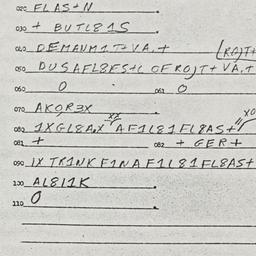 020 FLAS+N
030 + BUTL81S
040 DEMANM1T+VA.+ (ROJT+
050 DUSAFL8FS+( OFROJT+VA.T
060 0 061 0
070 AKOR3X
080 1XGL8A.X AF1L81FL8AS+
081 + 082 + GER+
090 1X TR1NKF1NAF1L81FL8AS+
100 AL811K
110 0